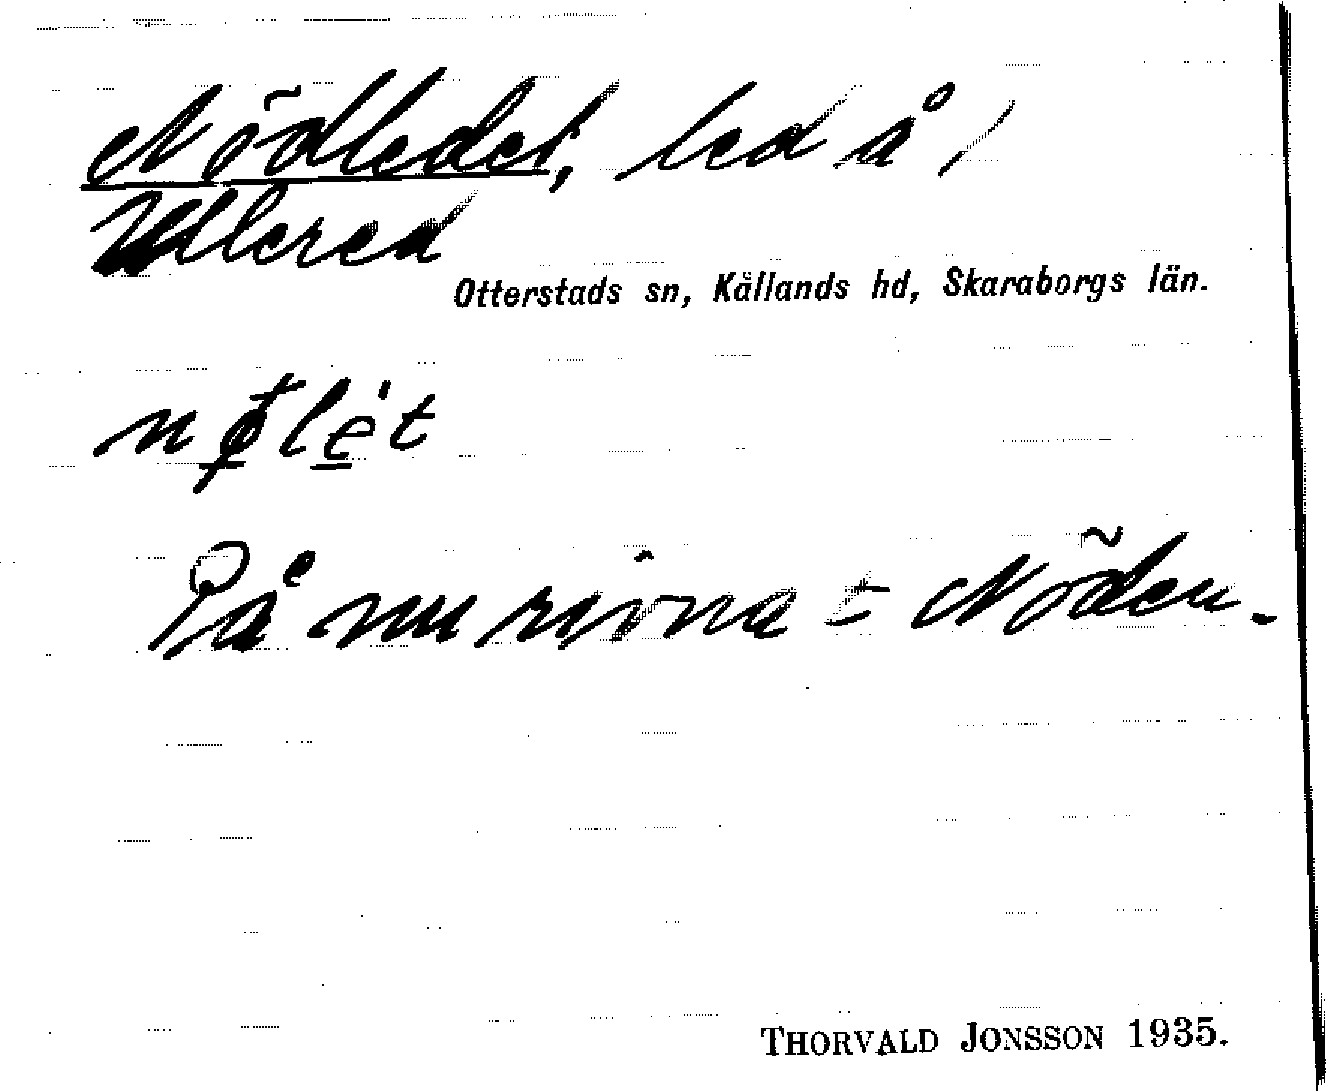 Nödledet, led å /
Ullered
Otterstads sn, Kållands hd, Skaraborgs län.
nø̱lè̱t
På nu rivna t Nöden.
THORVALD JONSSON 1935.